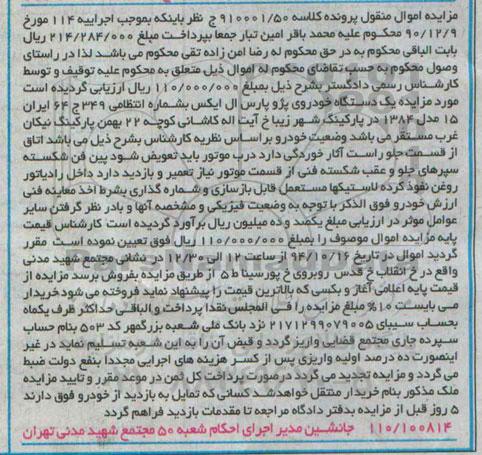 مزایده اموال منقول پرونده کلاسه 910001/50 ج نظر باینکه بموجب اجراییه 114 مورخ
90/12/9 محکوم علیه محمد باقر امین تبار جمعا بپرداخت مبلغ 214/284/000 ریال
بابت الباقی محکوم به در حق محکوم له رضا امن زاده تقی محکوم می باشد لذا در راستای
وصول محکوم به حسب تقاضای محکوم له اموال ذیل متعلق به محکوم علیه توقیف و توسط
کارشناس رسمی دادگستر بشرح ذیل بمبلغ 110/000/000 ریال ارزیابی گردیده است
مورد مزایده یک دستگاه خودروی پژو پارس ال ایکس بشماره انتظامی 349 ج 64 ایران
15 مدل 1384 در پارکینگ شهر زیبا خ آیت اله کاشانی کوچه 22 بهمن پارکینگ نیکان
غرب مستقر می باشد وضعیت خودرو بر اساس نظریه کارشناس بشرح ذیل می باشد اتاق
از قسمت جلو راست آثار خوردگی دارد درب موتور باید تعویض شود پین فن شکسته
سپرهای جلو و عقب شکسته فنی از قسمت موتور نیاز تعمیر و بازدید دارد داخل رادیاتور
روغن نفوذ کرده لاستیکها مستعمل قابل بازسازی و شماره گذاری بشرط اخذ معاینه فنی
ارزش خودرو فوق الذکر با توجه به وضعیت فیزیکی و مشخصه آنها و بادر نظر گرفتن سایر
عوامل موثر در ارزیابی مبلغ یکصد و ده میلیون ریال برآورد گردیده است کارشناس قیمت
پایه مزایده اموال موصوف را بمبلغ 110/000/000 ریال فوق تعیین نموده است مقرر
گردید اموال در تاریخ 94/10/16 از ساعت 12 الی 12/30 در نشانی مجتمع شهید مدنی
واقع در خ انقلاب خ قدس روبروی خ پورسینا ط 5 از طریق مزایده بفروش برسد مزایده از
قیمت پایه اعلامی آغاز و بکسی که بالاترین قیمت را پیشنهاد نماید فروخته می شود خریدار
می بایست 10% مبلغ مزایده را فی المجلس نقدا پرداخت و الباقی حداکثر ظرف یکماه
بحساب سیبای 2171299079005 نزد بانک ملی شعبه بزرگمهر کد 503 بنام حساب
سپرده جاری مجتمع قضایی واریز گردد و قبض آن را به این شعبه تسلیم نماید در غیر
اینصورت ده درصد اولیه واریزی پس از کسر هزینه های اجرایی مجددا بنفع دولت ضبط
می گردد و مزایده تجدید می گردد در صورت پرداخت کل ثمن در موعد مقرر و تایید مزایده
ملک مذکور بنام خریدار منتقل خواهدشد کسانی که تمایل به بازدید از خودرو فوق دارند
5 روز قبل از مزایده بدفتر دادگاه مراجعه تا مقدمات بازدید فراهم گردد
110/100814 جانشین مدیر اجرای احکام شعبه 50 مجتمع شهید مدنی تهران